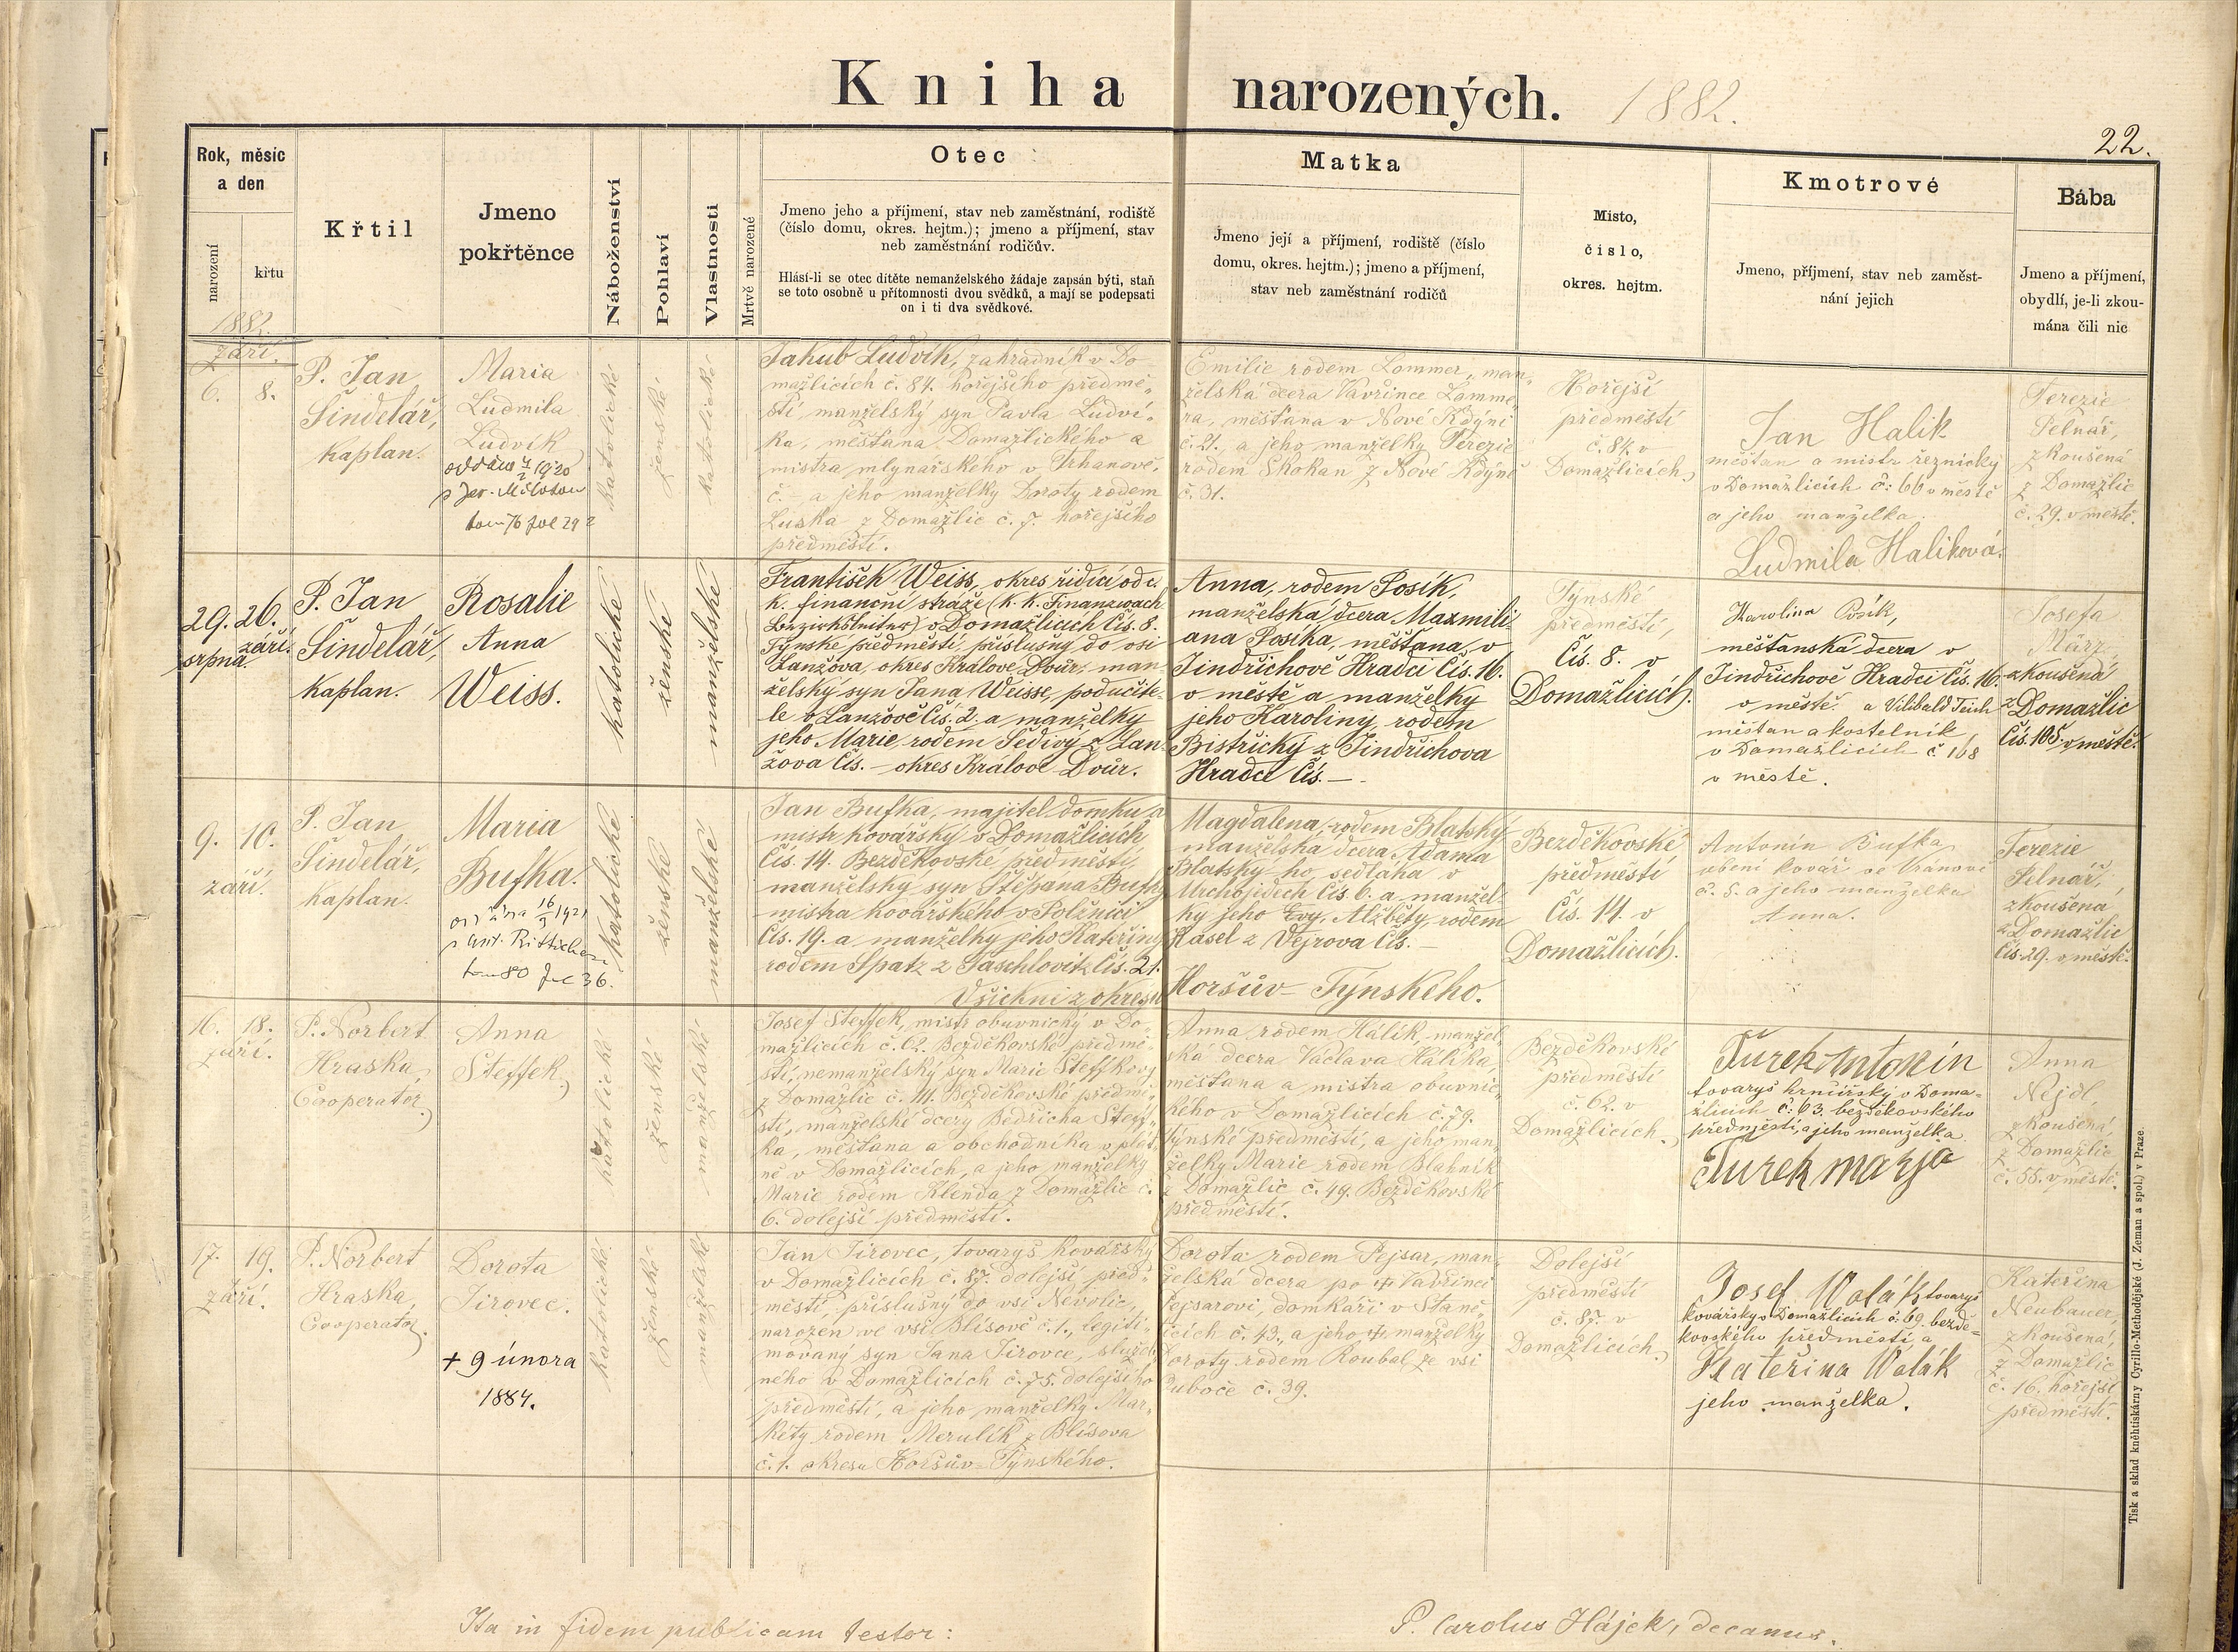 Kniha narozených. 1882.
22.
Rok, měsíc
a den
narození
křtu
Křtil
Jmeno
pokřtěnce
Náboženství
Pohlaví
Vlastnosti
Mrtvě narozené
Otec
Jmeno jeho a příjmení, stav neb zaměstnání, rodiště
(číslo domu, okres. hejtm.); jmeno a příjmení, stav
neb zaměstnání rodičův.
Hlásí-li se otec dítěte nemanželského žádaje zapsán býti, staň
se toto osobně u přítomnosti dvou svědků, a mají se podepsati
on i ti dva svědkové.
Matka
Jmeno její a příjmení, rodiště (číslo
domu, okres. hejtm.); jmeno a příjmení,
stav neb zaměstnání rodičů
Místo,
číslo,
okres. hejtm.
Kmotrové
Jmeno, příjmení, stav neb zaměst-
nání jejich
Bába
Jmeno a příjmení,
obydlí, je-li zkou-
mána čili nic
1882.
září.
6. 8.
P. Jan
Šindelář,
kaplan.
Maria
Ludmila
Ludvík
katolické
ženské
katolické
Jakub Ludvík, zahradník v Do-
mažlicích č. 84. hořejšího předmě-
stí, manželský syn Pavla Ludví-
ka, měšťana Domažlického a
mistra mlynářského v Trhanově,
č. – a jeho manželky Doroty rodem
Luska z Domažlic č. 7. hořejšího
předměstí.
Emilie rodem Lommer, man-
želská dcera Vavřince Lomme-
ra, měšťana v Nové Kdýni
č. 21. a jeho manželky Terezie
rodem Skokan z Nové Kdýně
č. 31.
Hořejší
předměstí
č. 84. v
Domažlicích.
Jan Halik
měšťan a mistr řeznický
v Domažlicích č: 66 v městě
a jeho manželka
Ludmila Haliková.
Terezie
Pelnář,
zkoušená
z Domažlic
č. 29. v městě.
29. 26.
srpna září.
P. Jan
Šindelář,
kaplan.
Rosalie
Anna
Weiss.
katolické
ženské
manželské
František Weiss, okres řidící od c.
k. finanční stráže (k. k. Finanzwach
Bezirksleiter) v Domažlicích Čís. 8.
Týnské předměstí, příslušný do vsi
Lanžova, okres Králové Dvůr, man-
želský syn Jana Weisse, podučite-
le v Lanžově Čís. 2. a manželky
jeho Marie, rodem Šedivý z Lan-
žova Čís. – okres Králové Dvůr.
Anna, rodem Posík,
manželská dcera Maxmili-
ana Posíka, měšťana, v
Jindřichově Hradci Čís. 16.
v městě a manželky
jeho Karoliny, rodem
Bistřický z Jindřichova
Hradce Čís. –
Týnské
předměstí,
Čís. 8. v
Domažlicích.
Karolina Posík,
měšťanská dcera v
Jindřichově Hradci Čís. 16.
v městě. a Vilibald Teich
měšťan a kostelník
v Domažlicích č 168
v městě.
Josefa
März,
zkoušená
z Domažlic
Čís. 105. v městě.
9. 10.
září.
P. Jan
Šindelář,
kaplan.
Maria
Bufka.
katolické
ženské
manželské
Jan Bufka, majitel domku a
mistr kovářský v Domažlicích
Čís. 14. Bezděkovské předměstí,
manželský syn Štěpána Bufky
mistra kovářského v Polžnici
Čís. 19. a manželky jeho Kateřiny
rodem Spatz z Taschlovitz Čís. 21.
Všichni z okresu
Magdalena, rodem Blatský
manželská dcera Adama
Blatský-ho, sedláka v
Mchojedech Čís. 6. a manžel-
ky jeho Evy, Alžběty, rodem
Kasel z Vejrova Čís. –
Horšův-Týnského.
Bezděkovské
předměstí
Čís. 14. v
Domažlicích.
Antonín Bufka
obení kovář ve Vránově
č. 5. a jeho manželka
Anna.
Terezie
Pelnář,
zkoušená
z Domažlic
Čís. 29. v městě.
16. 18.
září.
P. Norbert
Hraska,
Cooperator.
Anna
Steffek.
katolické
ženské
manželské
Josef Steffek, mistr obuvnický v Do-
mažlicích č. 62. Bezděkovské předmě-
stí, nemanželský syn Marie Steffkovy
z Domažlic č. 14. Bezděkovské předmě-
stí, manželské dcery Bedřicha Steff-
ka, měšťana a obchodníka v plát-
ně v Domažlicích, a jeho manželky
Marie rodem Klenda z Domažlic č.
6. dolejší předměstí.
Anna rodem Hálík, manžel-
ská dcera Václava Hálíka,
měšťana a mistra obuvnic-
kého v Domažlicích č. 79.
Týnské předměstí, a jeho man-
želky Marie rodem Blahník
z Domažlic č. 49. Bezděkovské
předměstí.
Bezděkovské
předměstí
č. 62. v
Domažlicích.
Turek Antonín
tovaryš hrnčířský v Doma-
žlicích č. 63. bezděkovského
předměstí, a jeho manželka
Turek marja
Anna
Nejdl,
zkoušená
z Domažlic
č. 55. v městě.
17. 19.
září.
P. Norbert
Hraska,
Cooperator.
Dorota
Jirovec.
+ 9 února
1884.
katolické
ženské
manželské
Jan Jirovec, tovaryš kovářský
v Domažlicích č. 87. dolejší před-
městí, příslušný do vsi Nevolic,
narozen ve vsi Blísově č. 1., legiti-
movaný syn Jana Jirovce, služeb-
ného v Domažlicích č. 75. dolejšího
předměstí, a jeho manželky Mar-
kéty rodem Merulík z Blísova
č. 1. okresu Horšův-Týnského.
Dorota rodem Pejsar, man-
želská dcera po † Vavřinci
Pejsarovi, domkáři v Staně-
ticích č. 43., a jeho † manželky
Doroty rodem Roubal ze vsi
Luboče č. 39.
Dolejší
předměstí
č. 87. v
Domažlicích.
Josef Volák tovaryš
kovářský v Domažlicích č. 69. bezdě-
kovského předměstí a
Kateřina Volák
jeho manželka.
Kateřina
Neubauer,
zkoušená,
z Domažlic
č. 16. hořejší
předměstí.
Ita in fidem publicam testor:
P. Carolus Hájek, decanus.
Tisk a sklad kněhtiskárny Cyrillo-Methodějské (J. Zeman a spol.) v Praze.